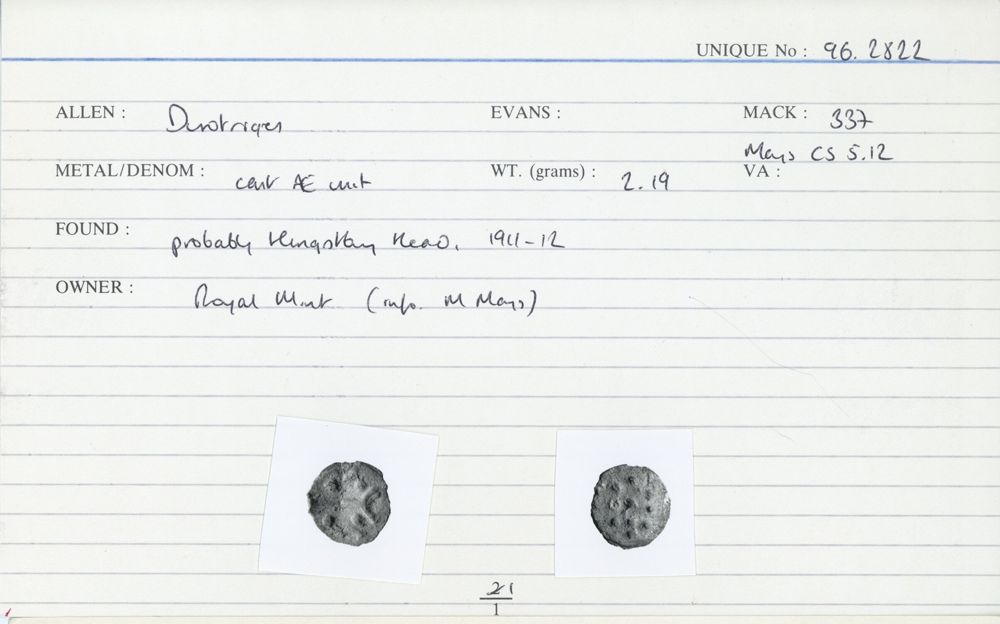 UNIQUE No : 96. 2822
ALLEN : Durotriges EVANS : MACK : 337
Mays CS 5.12
METAL/DENOM : cast AE unit WT. (grams) : 2.19 VA :
FOUND : probably Hengistbury Head, 1911-12
OWNER : Royal Mint (info. M Mays)
21
1